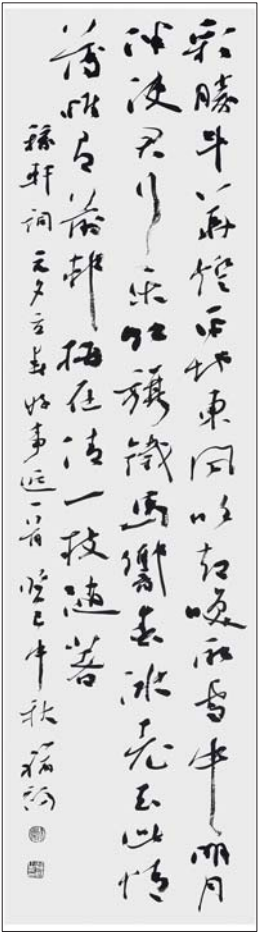 彩勝斗華燈平把東風吹却喚取雪中明月
伴使君行樂紅旗鐵馬響春冰老去此情
薄惟有前邨梅在倩一枝隨著
稼軒詞元夕立春好事近一首癸巳中秋